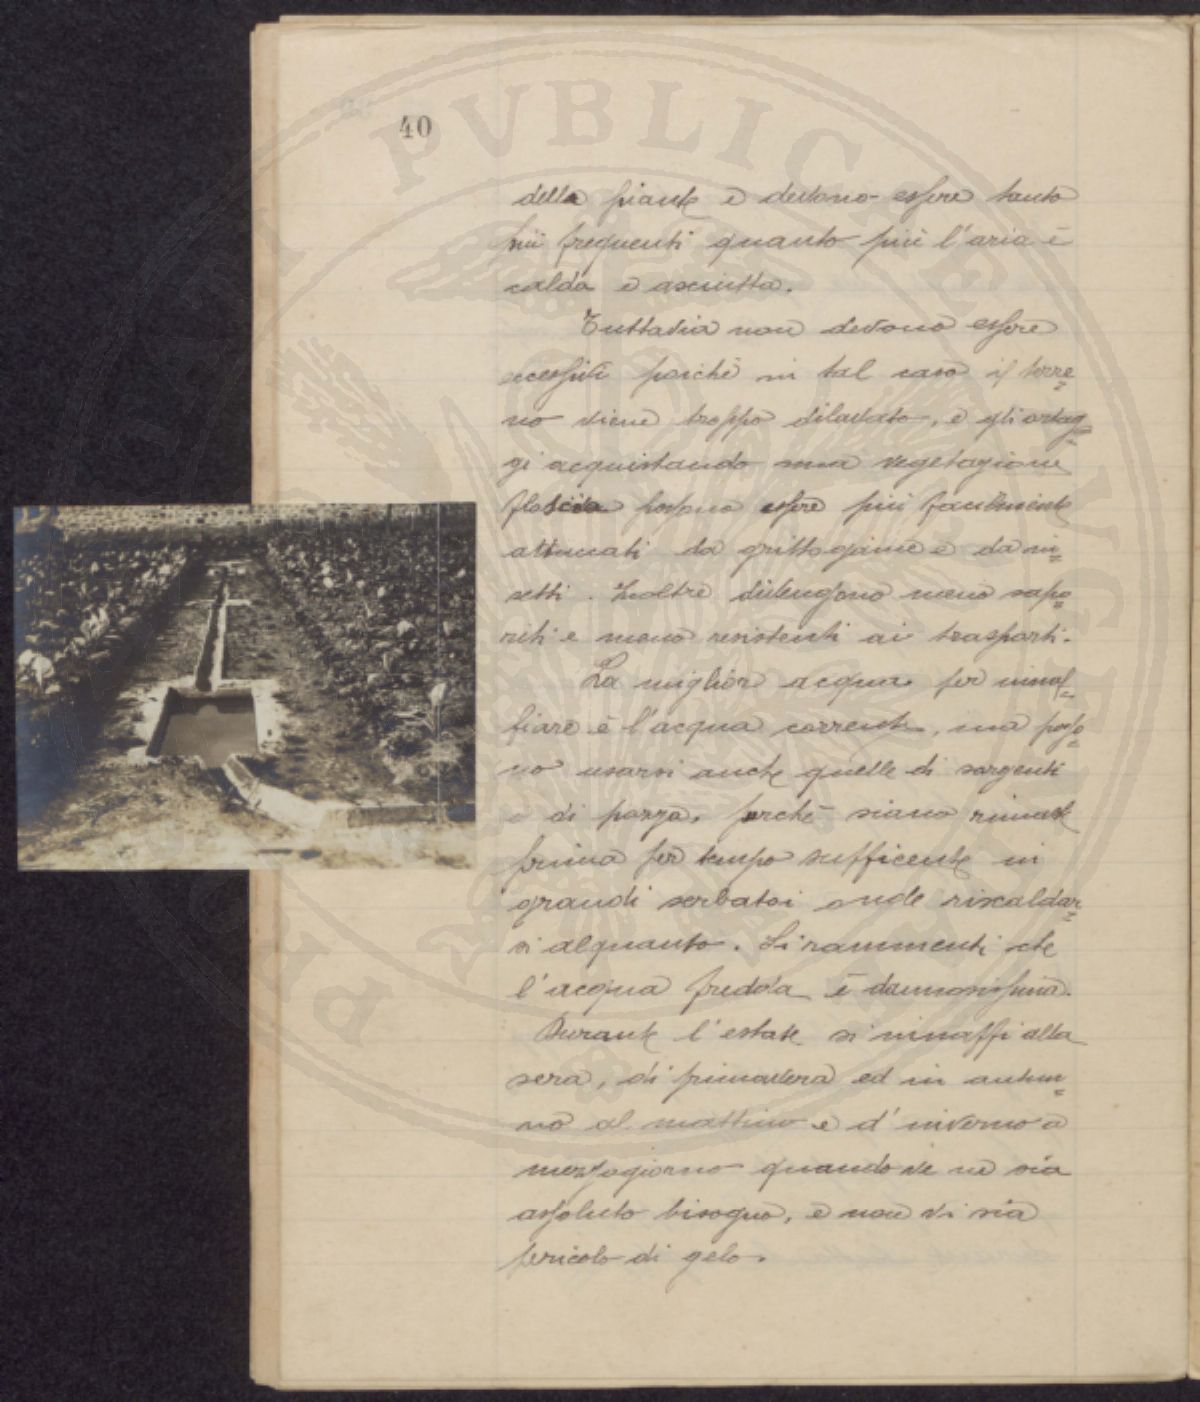 40
della piante e devono essere tanto
più frequenti quanto più l'aria è
calda e asciutta.
Tuttavia non devono essere
eccessivi poichè in tal caso il terre=
no viene troppo dilavato, e gli ortag=
gi acquistando una vegetazione
floscia possono essere più facilmente
attaccati da crittogame e da in=
setti. Inoltre divengono meno sapo=
riti e meno resistenti ai trasporti.
La miglior acqua per innaf=
fiare è l'acqua corrente, ma posso=
no usarsi anche quelle di sorgenti
e di pozzo, perchè siano rimaste
prima per tempo sufficente in
grandi serbatoi onde riscaldar=
si alquanto. Si rammenti che
l'acqua fredda è dannosissima.
Durante l'estate si innaffi alla
sera, di primavera ed in autun=
no al mattino e d'inverno a
mezzogiorno quando ve ne sia
assoluto bisogno, e non vi sia
pericolo di gelo.